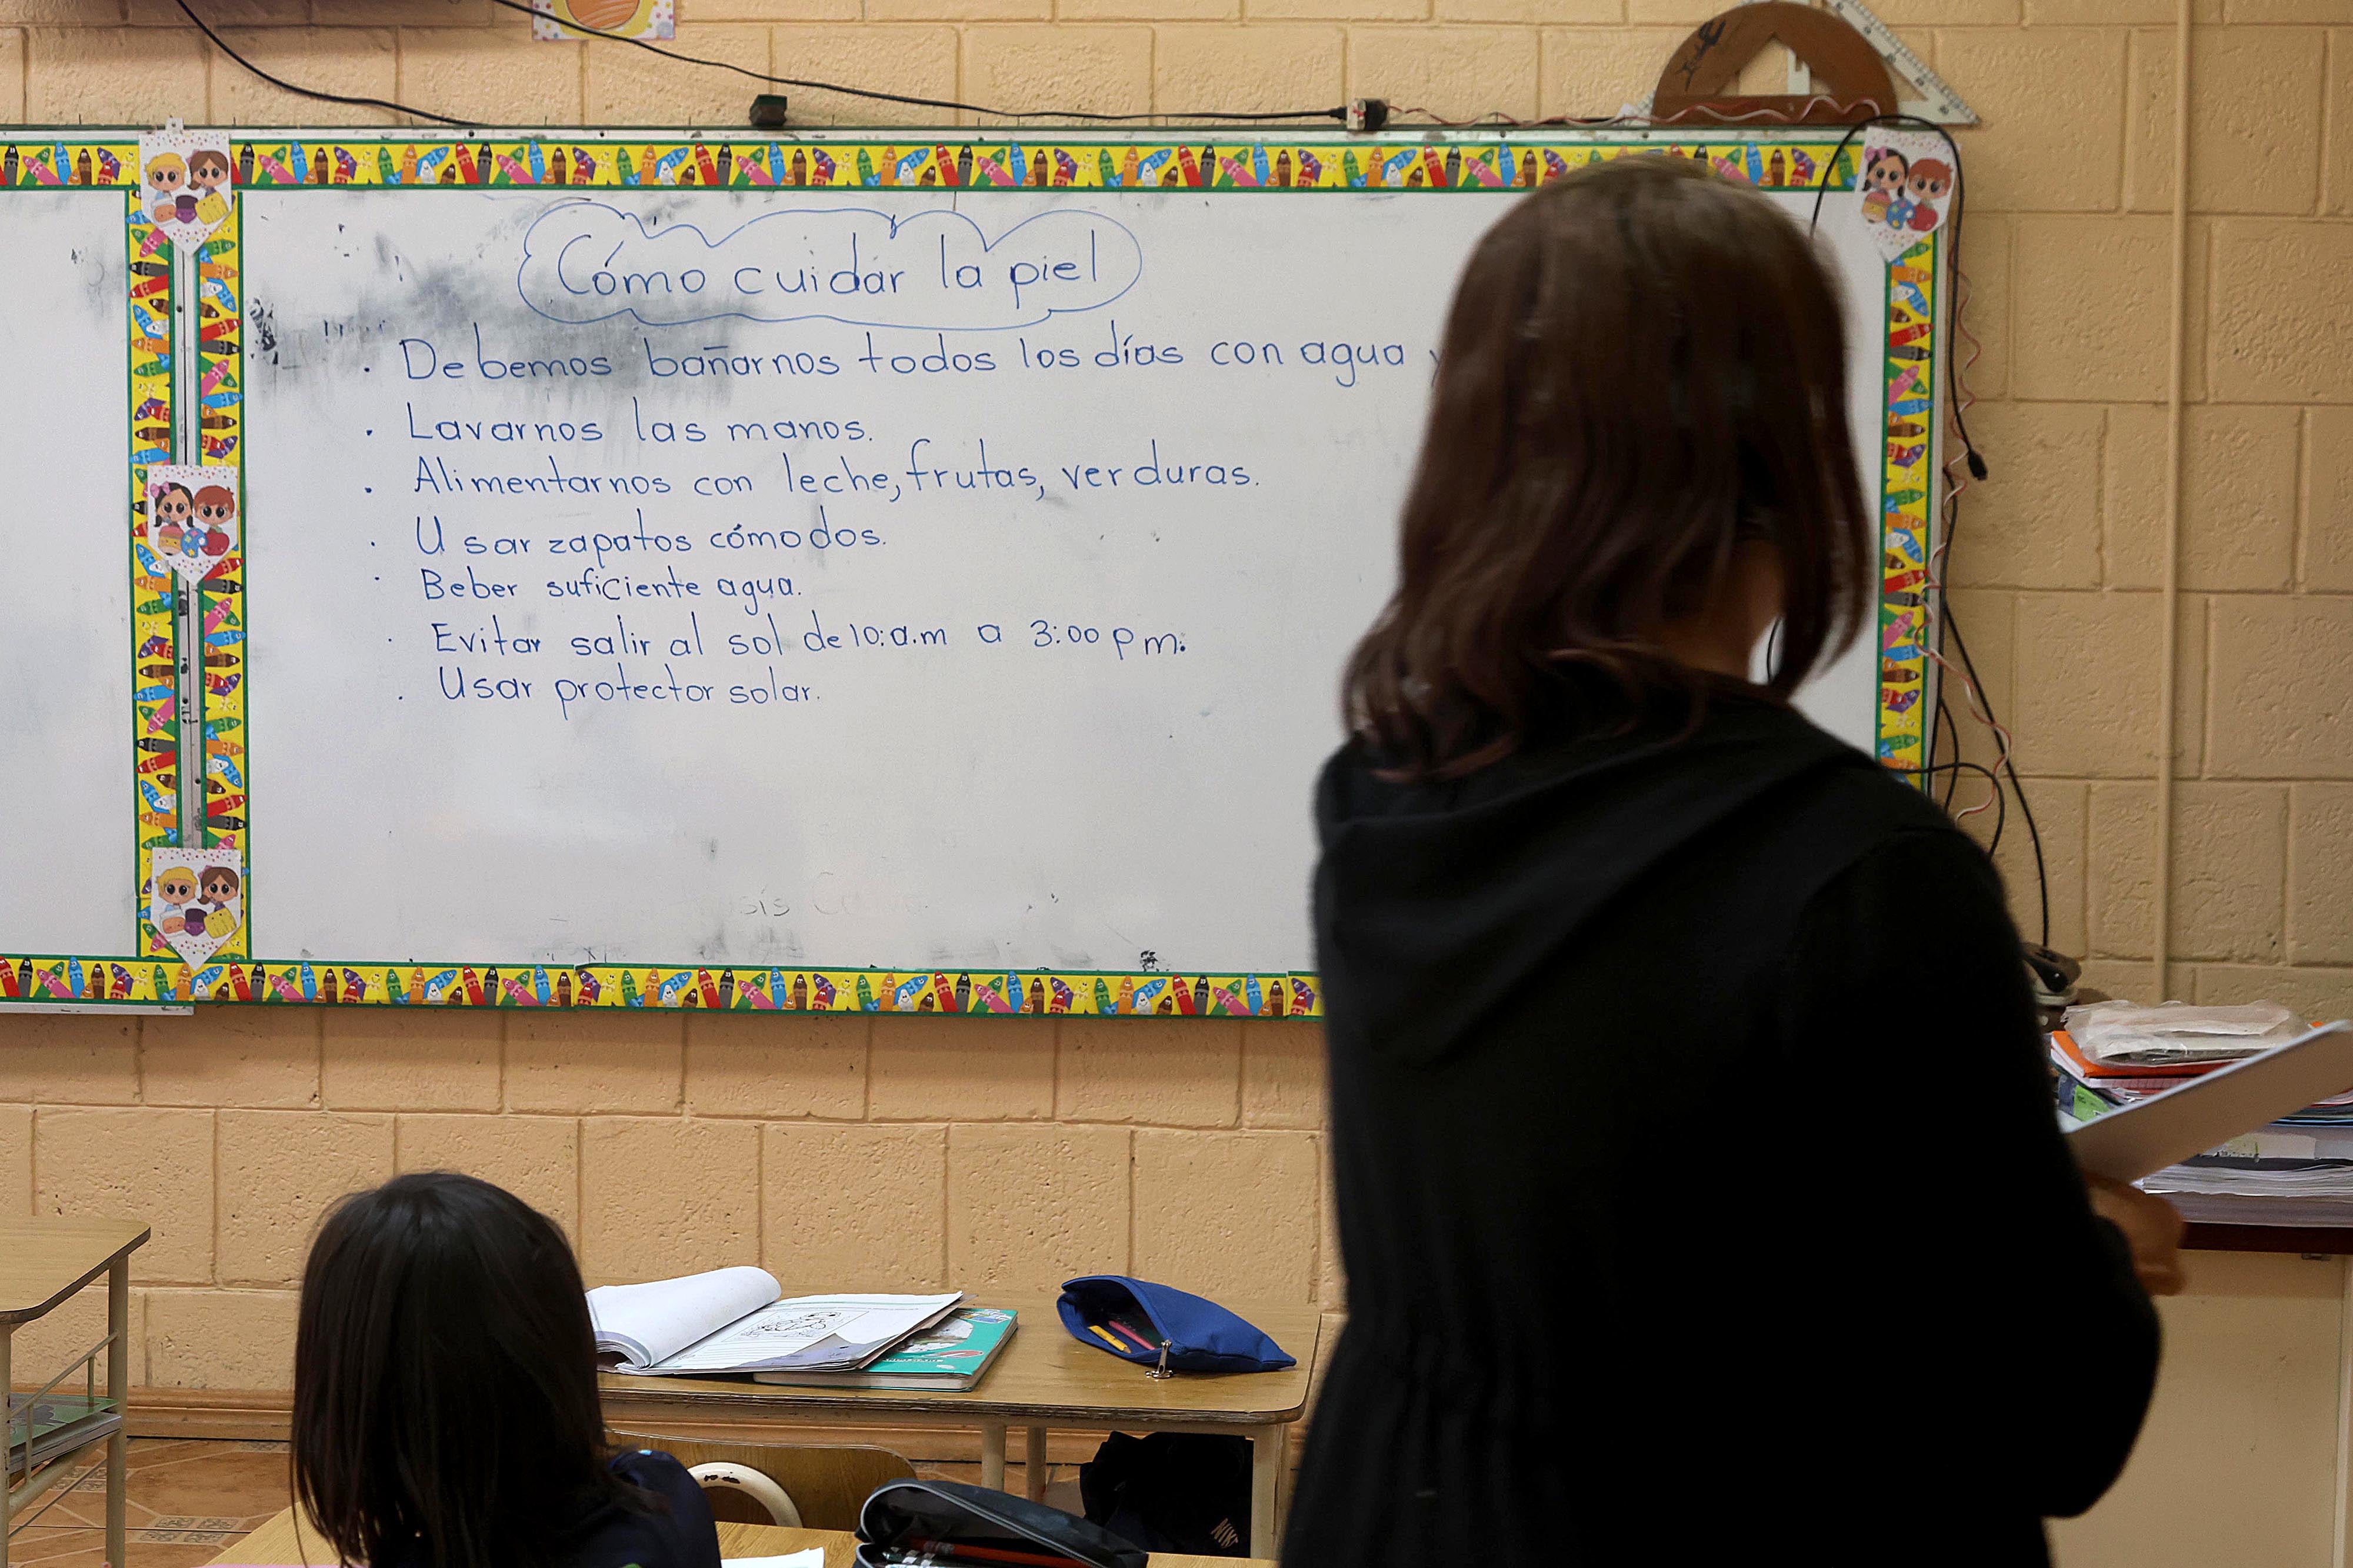 Cómo cuidar la piel
. Debemos bañarnos todos los días con agua y
. Lavarnos las manos.
. Alimentarnos con leche, frutas, verduras.
. Usar zapatos cómodos.
. Beber suficiente agua.
. Evitar salir al sol de 10:a.m a 3:00 p m.
. Usar protector solar.